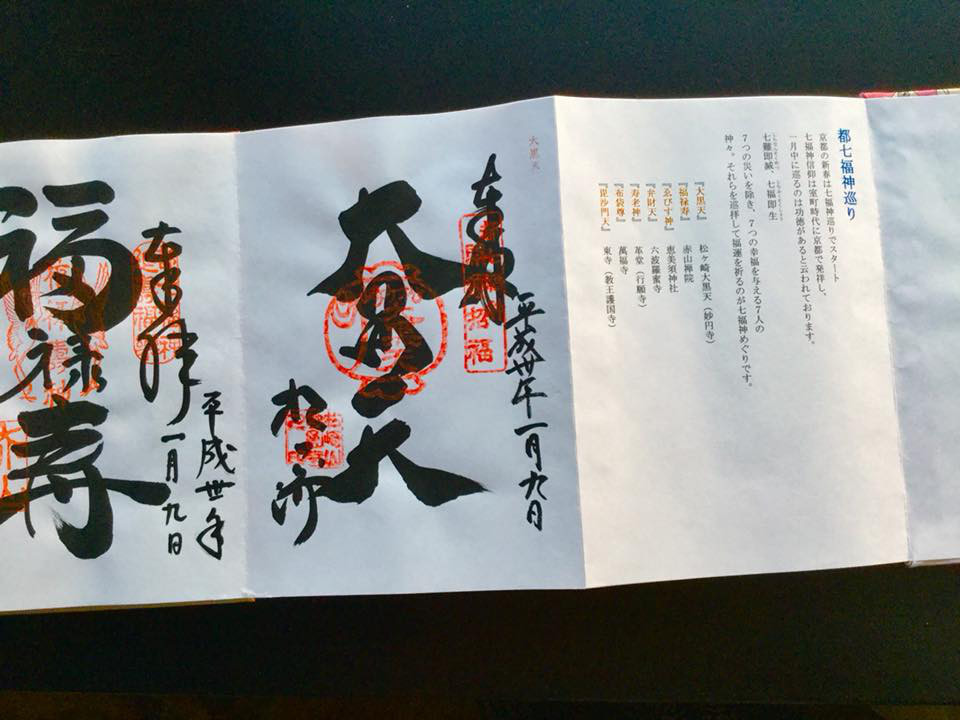 都七福神巡り
京都の新春は七福神巡りでスタート
七福神信仰は室町時代に京都で発祥し、
一月中に巡るのは功徳があると云われております。
七難即滅、七福即生
7つの災いを除き、7つの幸福を与える7人の
神々。それらを巡拝して福運を祈るのが七福神めぐりです。
『大黒天』 松ヶ崎大黒天(妙円寺)
『福禄寿』 赤山禅院
『ゑびす神』 恵美須神社
『弁財天』 六波羅蜜寺
『寿老神』 革堂(行願寺)
『布袋尊』 萬福寺
『毘沙門天』 東寺(教王護国寺)
大黒天
平成卅年一月九日
奉拝
招福
大黒天
平成卅年
一月九日
奉拝
福禄寿